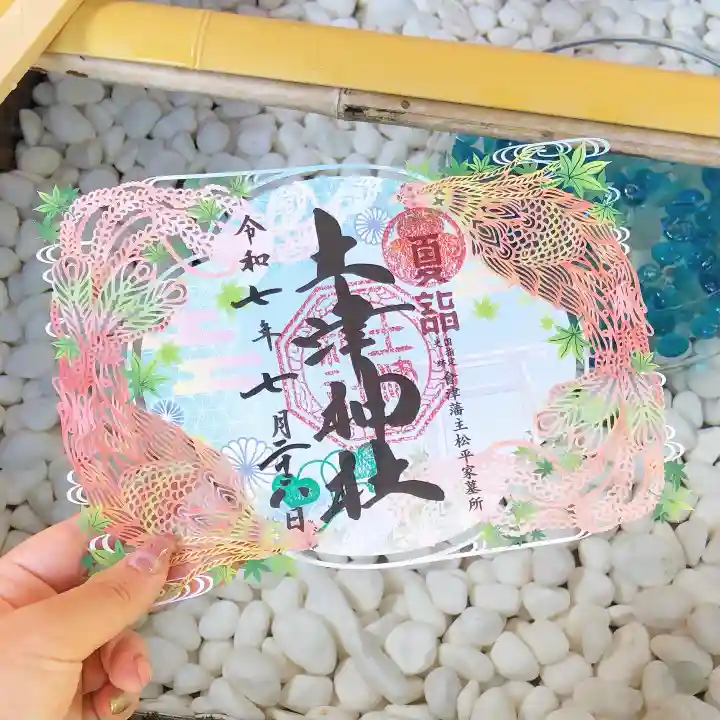 夏詣
会津藩主松平家墓所
土津神社
令和七年七月二十八日